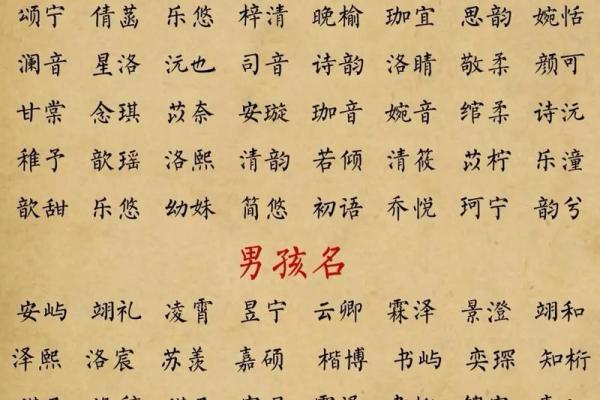 颂宁 倩菡 乐悠 梓清 晚榆 珈宜 思韵 婉恬
澜音 星洛 沅也 司音 诗韵 洛晴 敬柔 颜可
甘棠 念琪 苡奈 安璇 珈音 婉音 绾柔 诗沅
稚予 歆瑶 洛熙 清韵 若倾 清筱 苡柠 乐潼
歆甜 乐悠 幼姝 简悠 初语 乔悦 珂宁 韵兮
男孩名
安屿 翊礼 凌霄 昱宁 云卿 霖泽 景澄 翊和
泽熙 洛宸 苏羡 嘉硕 楷博 书屿 奕琛 知桁